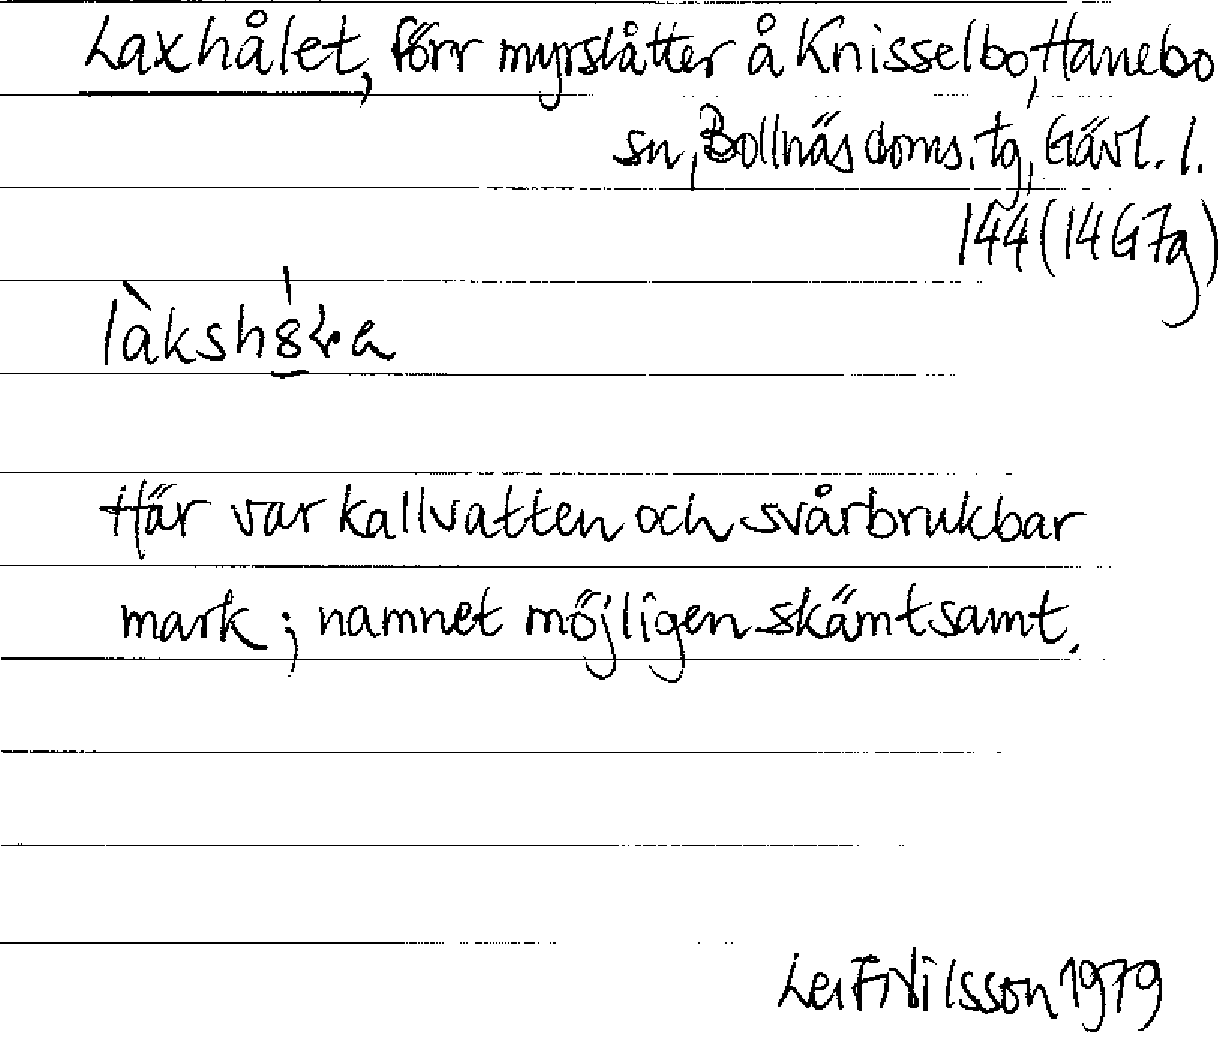 Laxhålet, förr myrslåtter å Knisselbo, Hanebo
sn, Bollnäs doms. tg, Gävl. l.
144 (14G7g)
Här var kallvatten och svårbrukbar
mark; namnet möjligen skämtsamt.
Leif Nilsson 1979